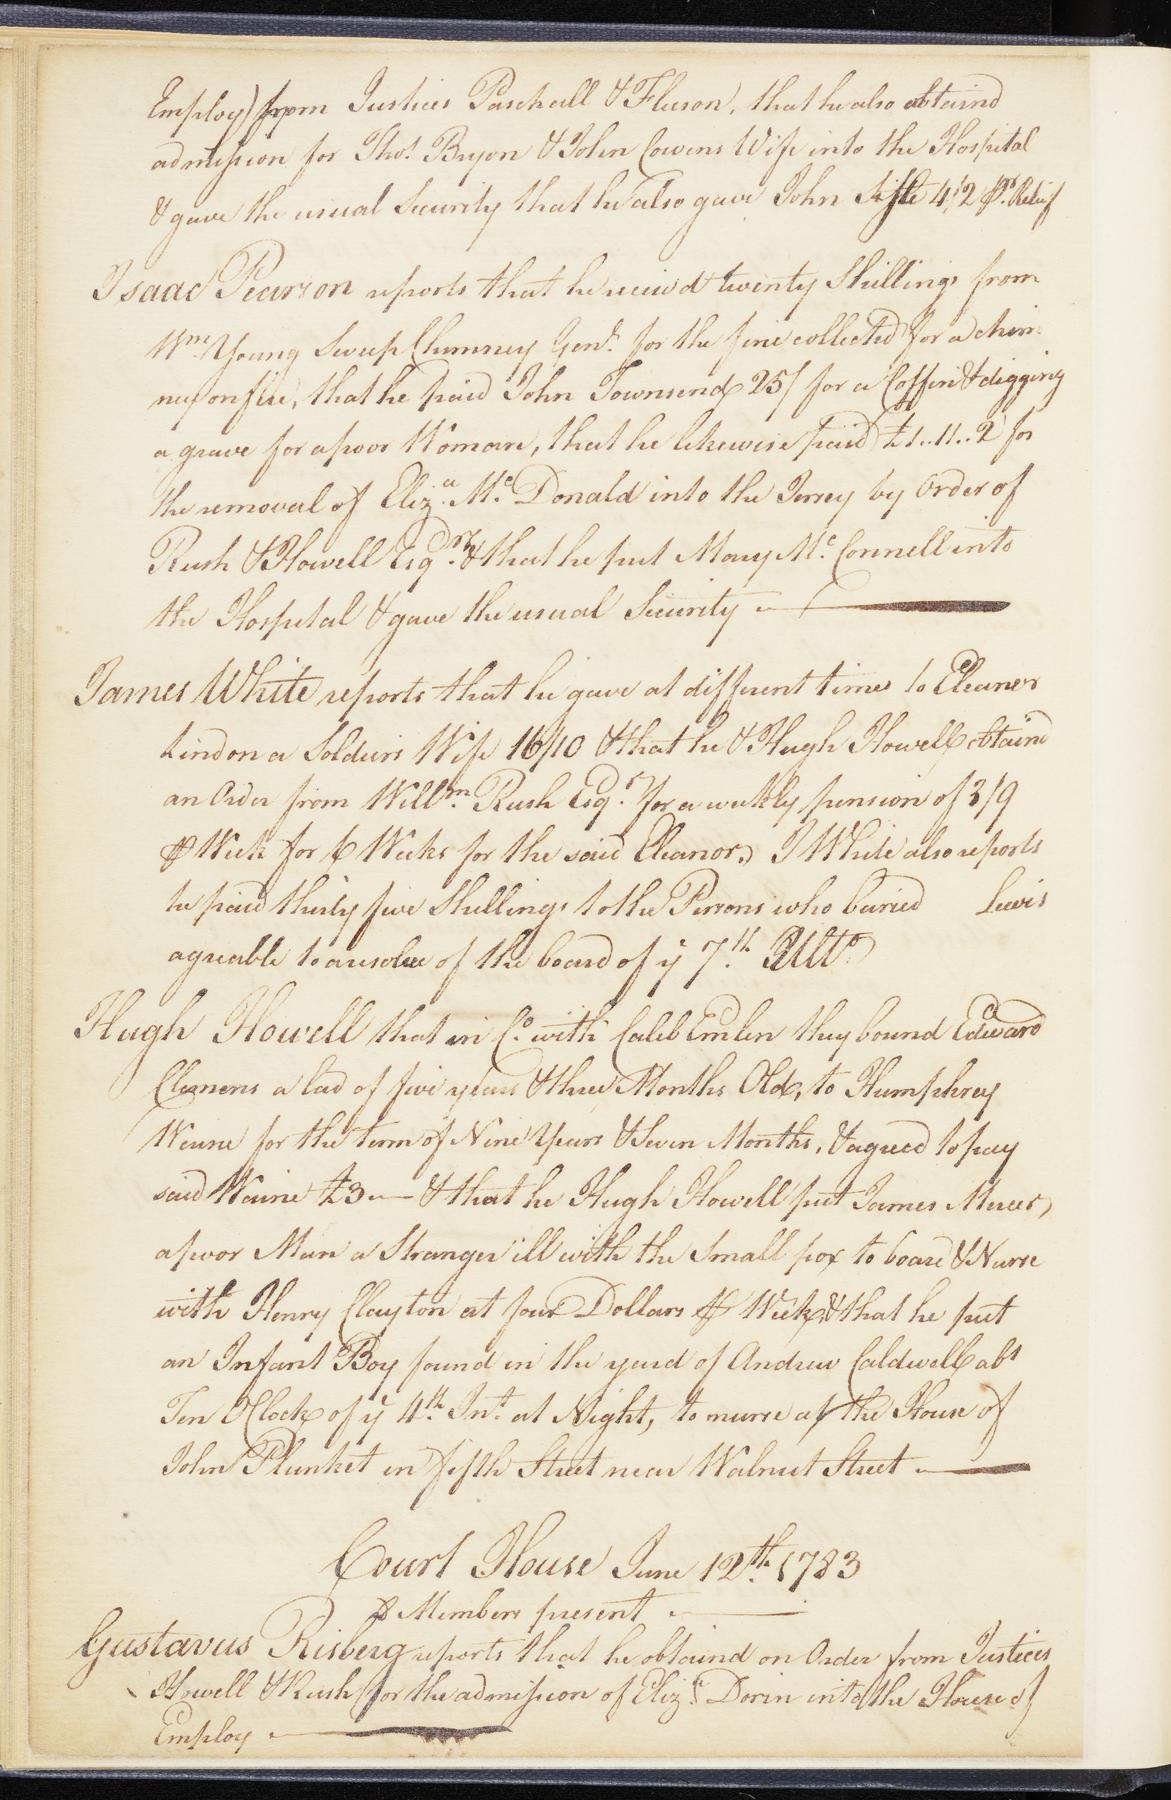 Employ) from Justices Paschall & Fleeson, that he also obtaind
admission for Thos. Bryon & John Cowens Wife into the Hospital
& gave the usual Security that he also gave John 4/2 pr. Relief
Isaac Pearson reports that he receivd twenty Shillings from
Wm. Young Sweep Chimney Genl. for the fine collected for a chim
ney on fire, that he paid John Townsend 25/ for a Coffin & digging
a grave for a poor Woman, that he likewise paid £1..11..2 for
the removal of Eliza. Mc. Donald into the Jersey by Order of
Rush & Howell Esqrs. & that he put Mary Mc. Connell into
the Hospital & gave the usual Security
James White reports that he gave at different times to Eleanor
Lindon a Soldiers Wife 16/10 & that he & Hugh Howell obtaind
an Order from Willm. Rush Esqr. for a weekly pension of 3/9
⅌ Week for 6 Weeks for the said Eleanor, J White also reports
he paid thirty five Shillings to the Persons who buried Lewis
agreable to a resolve of the board of ye 7th. Ulto.
Hugh Howell that in Co. with Caleb Emlen they bound Edward
Clemens a lad of five years & three Months Old, to Humphrey
Waine for the term of Nine Years & Seven Months, & agreed to pay
said Waine £3 — & that he Hugh Howell put James Mercer,
a poor Man a Stranger ill with the Small pox to board & Nurse
with Henry Clayton at four Dollars ⅌ Week, & that he put
an Infant Boy found in the yard of Andrew Caldwell abt
Ten OClock of ye 4th. Inst. at Night, to nurse at the House of
John Plunket in fifth Street near Walnut Street
Court House June 12th. 1783
8 Members present
Gustavus Risberg reports that he obtaind an Order from Justices
Howell & Rush for the admission of Eliza. Dorin into the House of
Employ